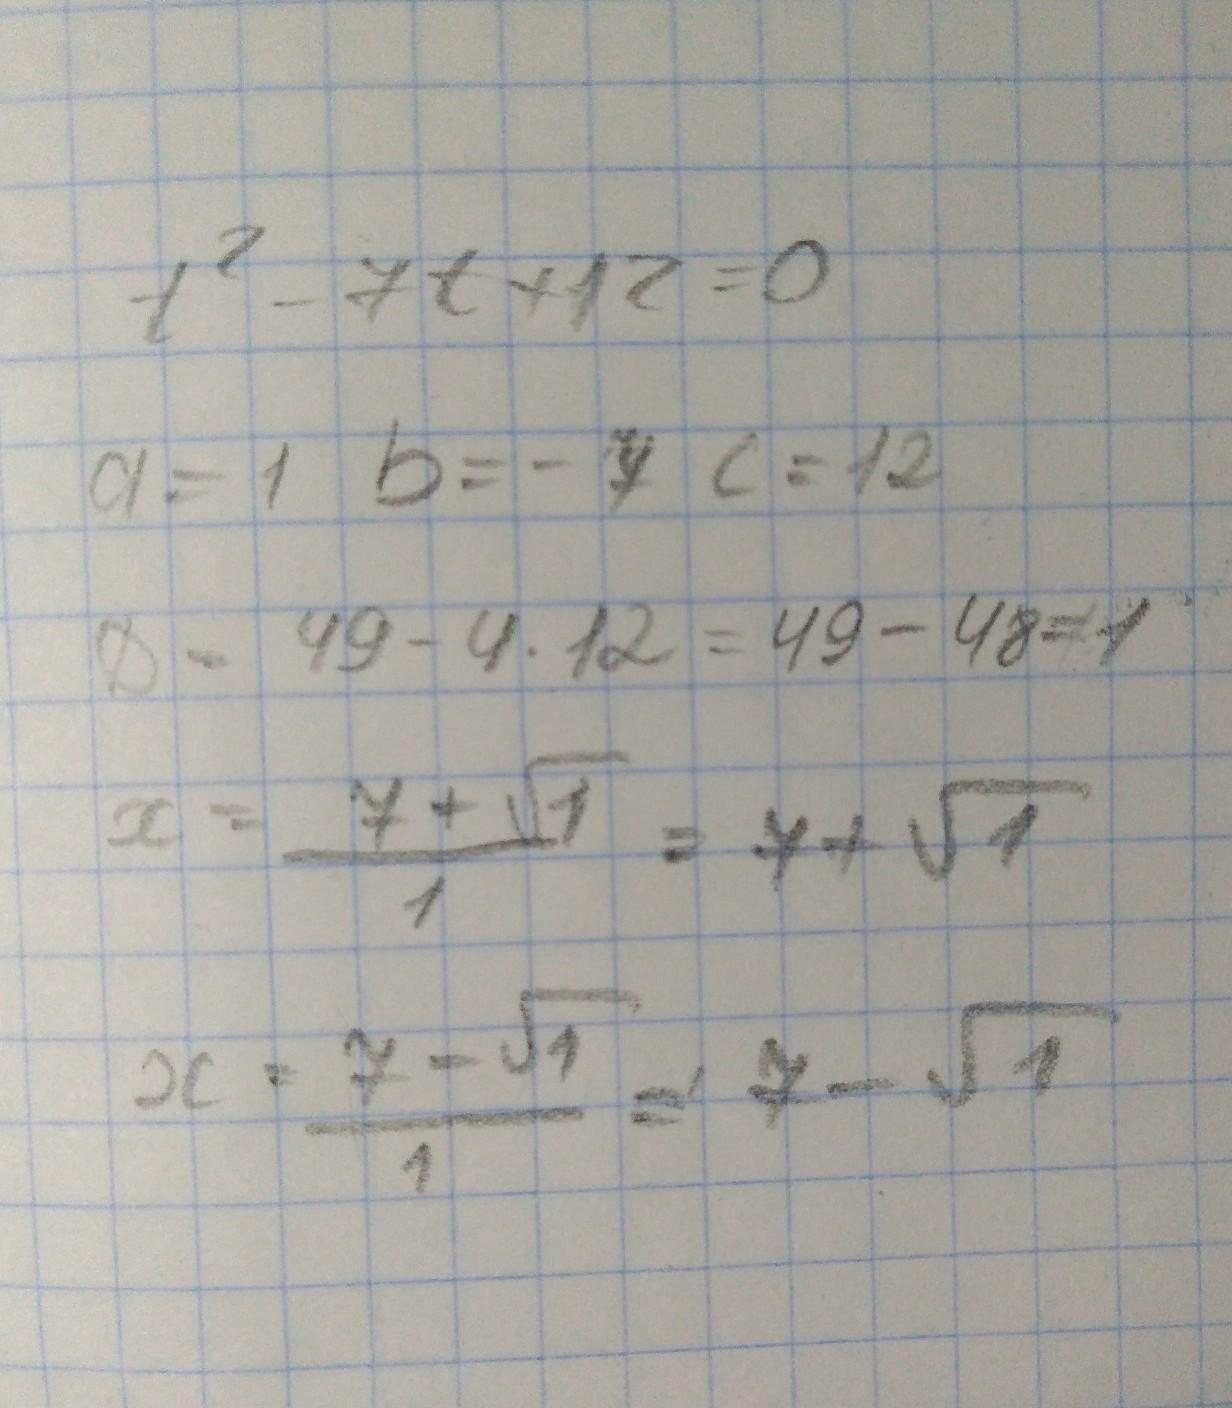 t² - 7t + 12 = 0
a = 1 b = - 7 c = 12
D = 49 - 4 · 12 = 49 - 48 = 1
x = (7 + √1)/1 = 7 + √1
x = (7 - √1)/1 = 7 - √1